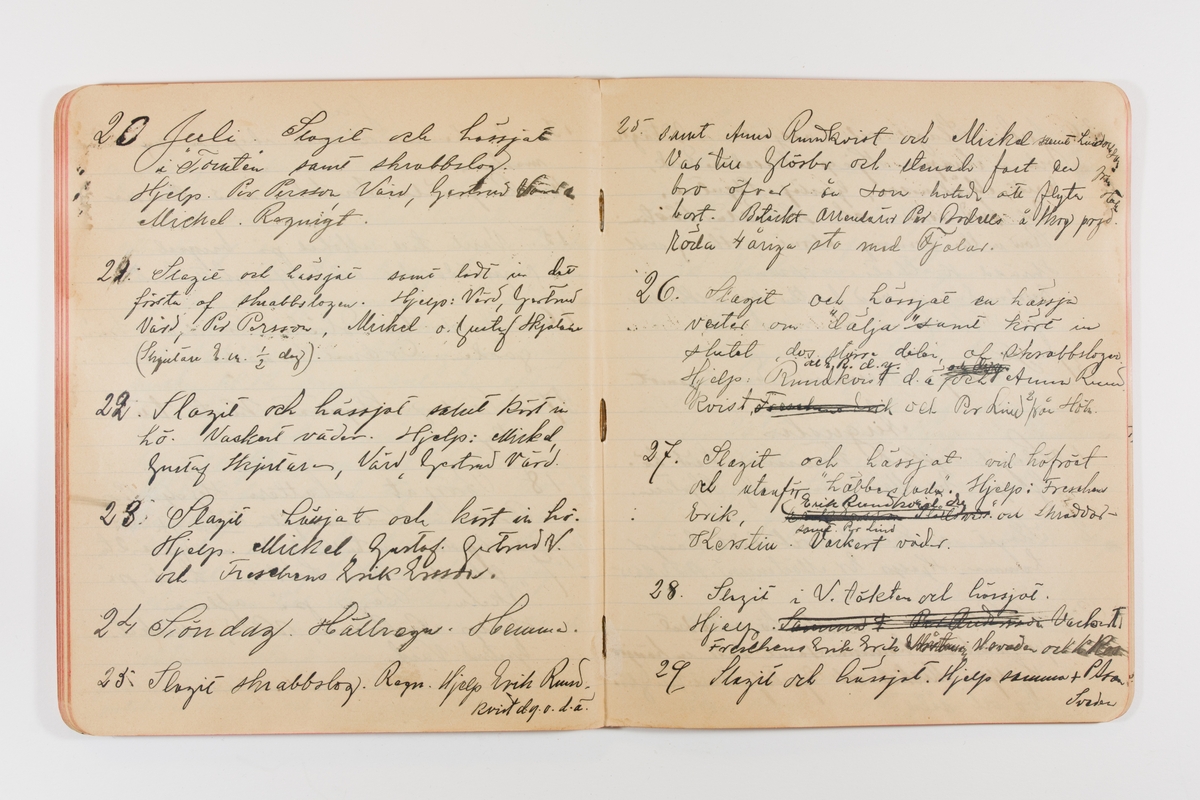 20 Juli. Slagit och hässjat
i Tomten samt skrabbslog.
Hjelp. Per Persson Vård, Gertrud
Mickel. Regnigt.
21. Slagit och hässjat samt ladt in det
första af skrabbslogen. Hjelp: Vård, Gertrud
Vård, Per Persson, Mickel o. Gustaf Skjutare
(Skjutare E. m. ½ dag).
22. Slagit och hässjat samt kört in
hö. Vackert väder. Hjelp: Mickel
Gustaf Skjutaren, Vård, Gertrud Vård.
23. Slagit hässjat och kört in hö.
Hjelp. Mickel, Gustaf. Gertrud V.
och Freschens Erik Ersson.
24 Söndag. Hällregn. Hemma.
25. Slagit skrabbslog. Regn. Hjelp Erik Rund-
kvist d.g. o. d.ä.
25. samt Anna Rundkvist och Mickel samt
Var till Glösbo och stenade fast en
bro öfver ån som hotade att flyta
bort. Betäckt Arrendator Per
Röda 4 åriga sto med Tjalar.
26. Slagit och hässjat en hässja
vester om "Dälja" samt kört in
slutet, den större delen, af skrabbslogen.
Hjelp: Rundkvist d.ä och Anna Rund-
kvist, och Per Lind från Höh.
27. Slagit och hässjat vid höfröet
och utanför "häbbesladu". Hjelp: Freschens
Erik, Erik Rundkvist d.y. och Skräddar-
samt Per Lind
Kerstin. Vackert väder.
28. Slagit i V. täkten och hässjat.
Hjelp. Samma + Per Andersson Vackert
Freschens Erik Erik och
29 Slagit och hässjat. Hjelp samma +
Sveden